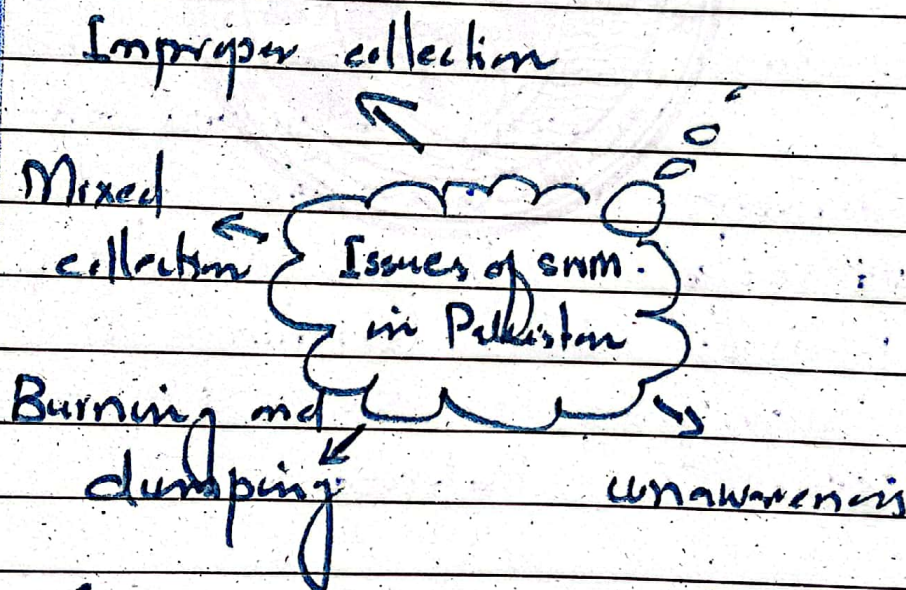 Improper collection
Mixed
collection
Issues of SWM
in Pakistan
Burning and
dumping
unawareness